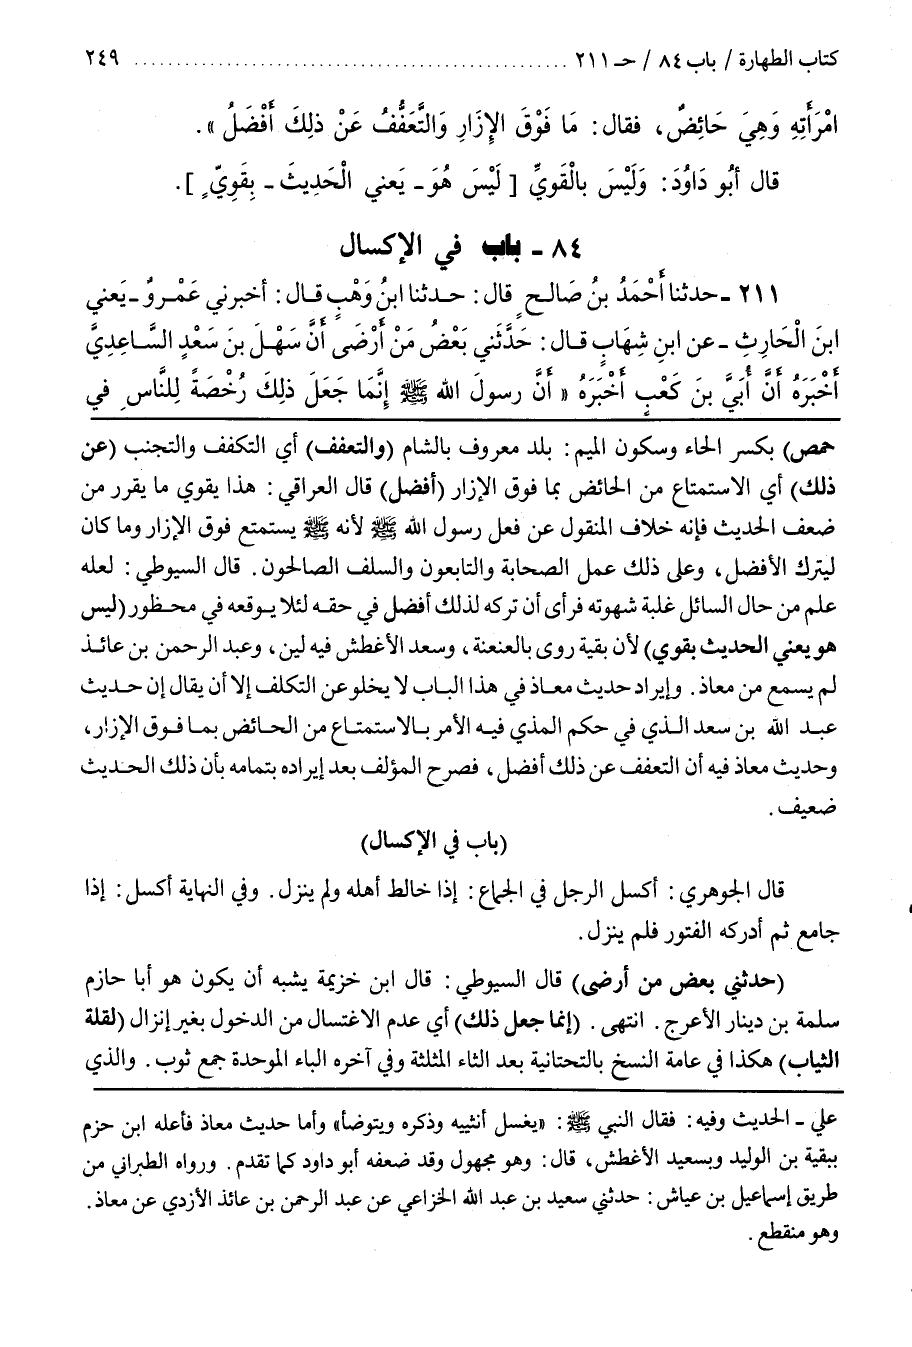 كتاب الطهارة / باب ٨٤ / حـ ٢١١ ................................................ ٢٤٩
امْرَأَتِهِ وَهِيَ حَائِضٌ، فقال: مَا فَوْقَ الإِزَارِ وَالتَّعَفُّفُ عَنْ ذلِكَ أَفْضَلُ».
قال أبُو دَاوُدَ: وَلَيْسَ بالْقَوِيِّ [ لَيْسَ هُوَ - يَعني الْحَدِيثَ - بِقَوِيّ ٍ ].
٨٤ - باب في الإكسال
٢١١ - حدثنا أَحْمَدُ بنُ صَالحٍ قال: حـدثنا ابنُ وَهْبٍ قـال: أخبرني عَمْـرٌو - يَعني
ابنَ الْحَارِثِ - عن ابنِ شِهَابٍ قـال: حَدَّثَني بَعْضُ مَنْ أَرْضَى أَنَّ سَهْـلَ بنَ سَعْدٍ السَّـاعِدِيَّ
أَخْبَرَهُ أَنَّ أُبَيَّ بنَ كَعْبٍ أَخْبَرَهُ « أَنَّ رسولَ الله ﷺ إِنَّمَا جَعَلَ ذلِكَ رُخْصَةً لِلنَّاسِ في
حمص) بكسر الحاء وسكون الميم: بلد معروف بالشام (والتعفف) أي التكفف والتجنب (عن
ذلك) أي الاستمتاع من الحائض بما فوق الإزار (أفضل) قال العراقي: هذا يقوي ما يقرر من
ضعف الحديث فإنه خلاف المنقول عن فعل رسول الله ﷺ لأنه ﷺ يستمتع فوق الإزار وما كان
ليترك الأفضل، وعلى ذلك عمل الصحابة والتابعون والسلف الصالحون. قال السيوطي: لعله
علم من حال السائل غلبة شهوته فرأى أن تركه لذلك أفضل في حقـه لئلا يـوقعه في محـظور (ليس
هو يعني الحديث بقوي) لأن بقية روى بالعنعنة، وسعد الأغطش فيه لين، وعبد الرحمن بن عائـذ
لم يسمع من معاذ. وإيراد حديث معـاذ في هذا البـاب لا يخلو عن التكلف إلا أن يقال إن حـديث
عبـد الله بن سعد الـذي في حكم المذي فيـه الأمر بـالاستمتـاع من الحـائض بمـا فـوق الإزار،
وحديث معاذ فيه أن التعفف عن ذلك أفضل، فصرح المؤلف بعد إيراده بتمامه بأن ذلك الحـديث
ضعيف.
(باب في الإكسال)
قال الجوهري: أكسل الرجل في الجماع: إذا خالط أهله ولم ينزل. وفي النهاية أكسل: إذا
جامع ثم أدركه الفتور فلم ينزل.
(حدثني بعض من أرضى) قال السيوطي: قال ابن خزيمة يشبه أن يكون هو أبا حازم
سلمة بن دينار الأعرج. انتهى. (إنما جعل ذلك) أي عدم الاغتسال من الدخول بغير إنزال (لقلة
الثياب) هكذا في عامة النسخ بالتحتانية بعد الثاء المثلثة وفي آخره الباء الموحدة جمع ثوب. والذي
علي - الحديث وفيه: فقال النبي ﷺ: «يغسل أنثييه وذكره ويتوضأ» وأما حديث معاذ فأعله ابن حزم
ببقية بن الوليد وبسعيد الأغطش، قال: وهو مجهول وقد ضعفه أبو داود كما تقدم. ورواه الطبراني من
طريق إسماعيل بن عياش: حدثني سعيد بن عبد الله الخزاعي عن عبد الرحمن بن عائذ الأزدي عن معاذ.
وهو منقطع.